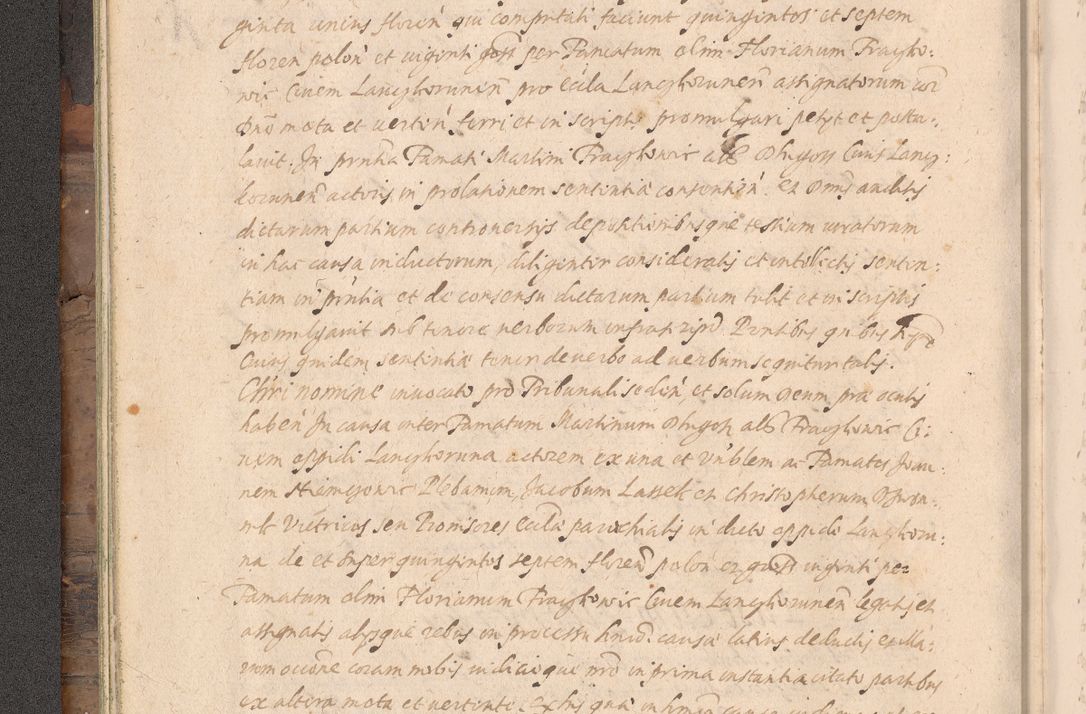 ginta unius floren̄ qui computati faciunt quingintos et septem
floren polon̄ et viginti gross per Famatum olim Florianum Fraczko:
wic Civem Lanczkorunen̄ pro eccla Lanczkorunen̄ assignatorum cor
Dno mota et verten̄ ferri et in scriptis promulgari petyt et postu:
lavit. In prntia Famati Martini Fraczkowic als Dlugosz Civis Lancz:
korunen̄ actoris in prolationem sententiae consentien̄. Et Dnus auditis
dictarum partium controversijs depositionibusque testium iuratorum
in hac causa inductorum, diligenter consideratis et intellectis senten:
tiam in prntia et de consensu dictarum partium tulit et in scriptis
promulgavit sub tenore verborum infrascript. Prntibus quibus supra
Cuius quidem sententiae tenor de verbo ad verbum sequitur talis.
Chri nomine invocato pro Tribunali seden̄ et solum Deum prae oculis
haben̄ In causa inter Famatum Martinum Dlugosz als Fraczkowic Ci:
vem oppidi Lanczkoruna actorem ex una et Vnblem ac Famatos Joan:
nem Plebanum, Jacobum Lassek et Christopherum
Vitricos seu Provisores ecclae parochialis in dicto oppido Lanczkoru:
na de et super quingintos septem floren̄ polon̄ et gross viginti per
Famatum olim Florianum Fraczkowic Civem Lanczkorunen̄ legatis et
assignatis alijsque rebus in processu hmoi causae latius deductis et illa:
rum occone coram nobis iudicioque nro in prima instantia citato partibus
ex altera mota et vertente. Ex his quae in hmoi causa